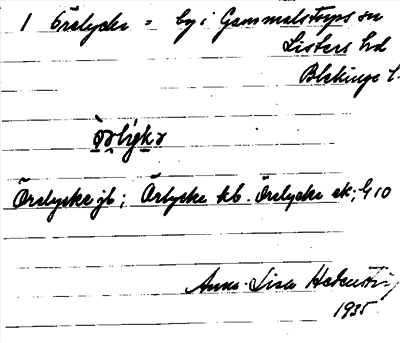 1 Örelycke = by i Gammalstorps sn
Listers hd
Blekinge l.
Örelycke jb; Örlycke kb. Örelycke ek; G 10
Anna-Lisa
1935